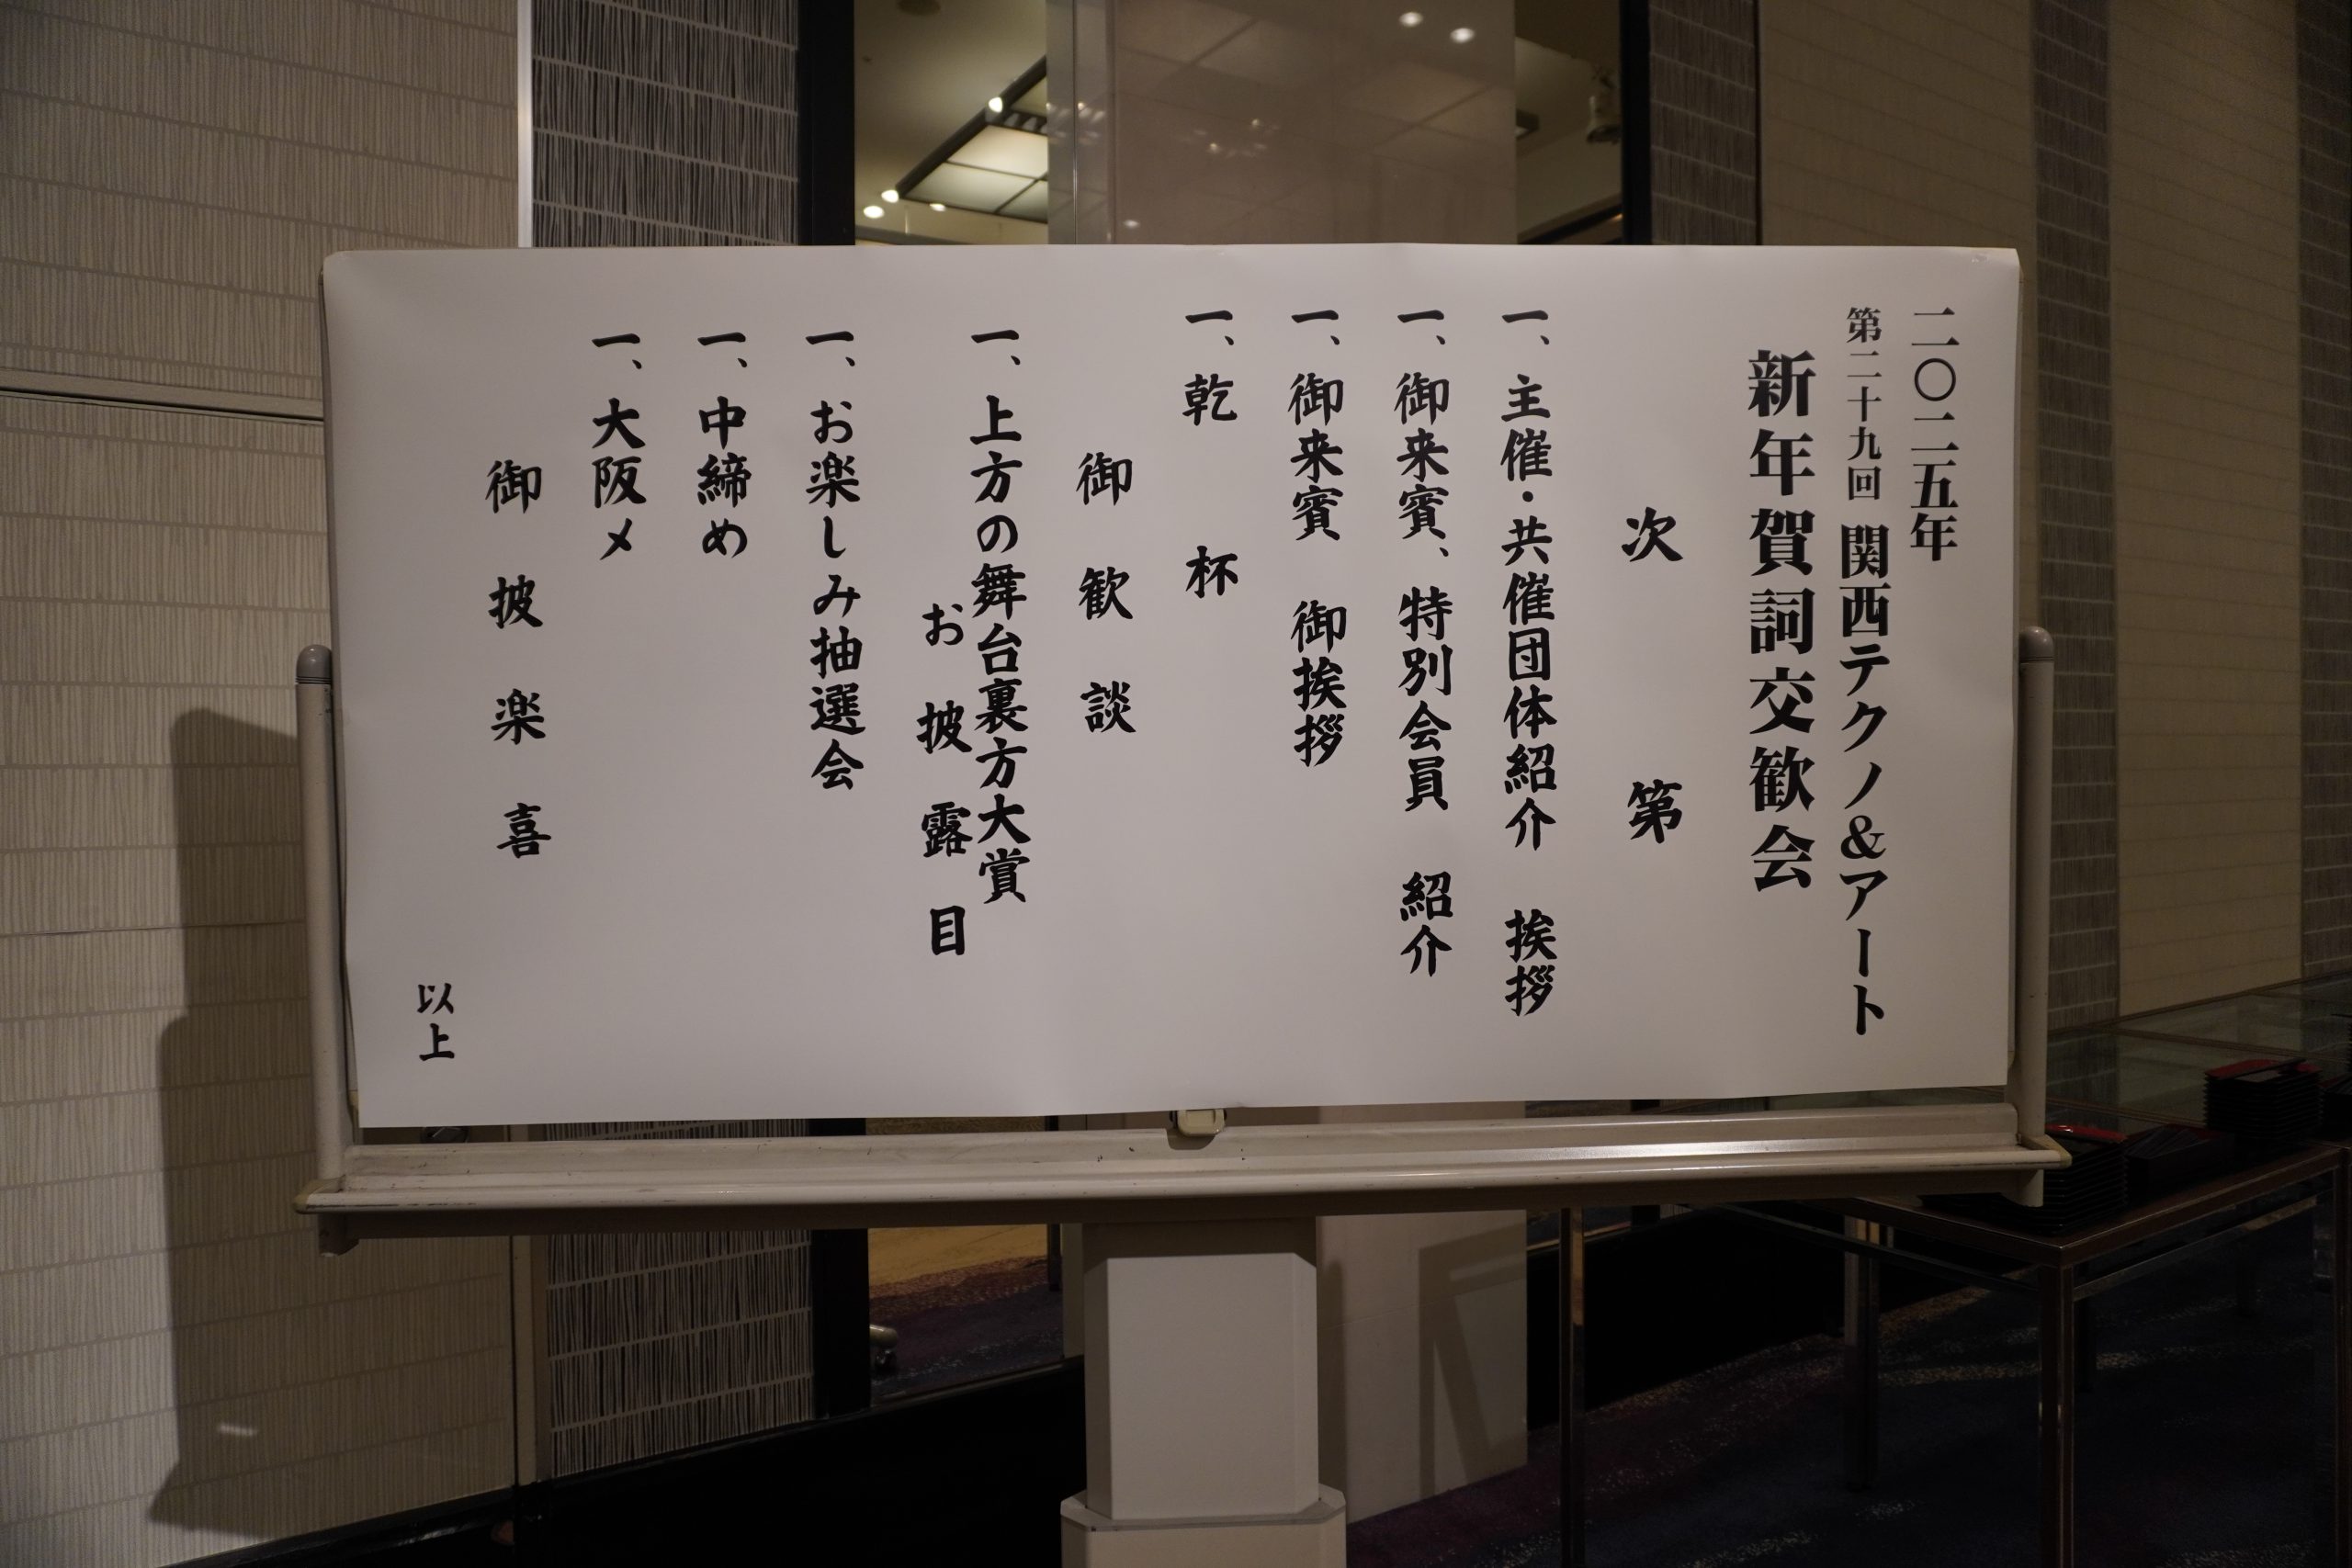 二〇二五年
第二十九回 関西テクノ&アート
新年賀詞交歓会
次 第
一、主催・共催団体紹介 挨拶
一、御来賓、特別会員 紹介
一、御来賓 御挨拶
一、乾 杯
御 歓 談
一、上方の舞台裏方大賞
お 披 露 目
一、お楽しみ抽選会
一、中締め
一、大阪〆
御 披 楽 喜
以上